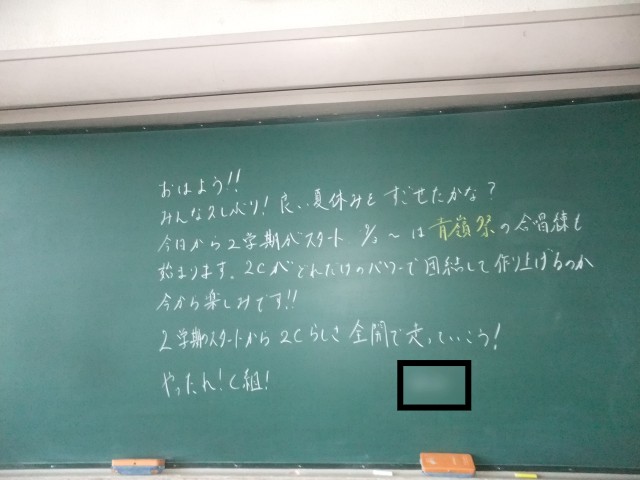 おはよう!!
みんな久しぶり!良い夏休みをすごせたかな?
今日から2学期がスタート 9/2〜は青嶺祭の合唱練も
始まります。2Cがどれだけのパワーで団結して作り上げるのか
今から楽しみです!!
2学期のスタートから2Cらしさ全開で走っていこう!
やったれ!C組!